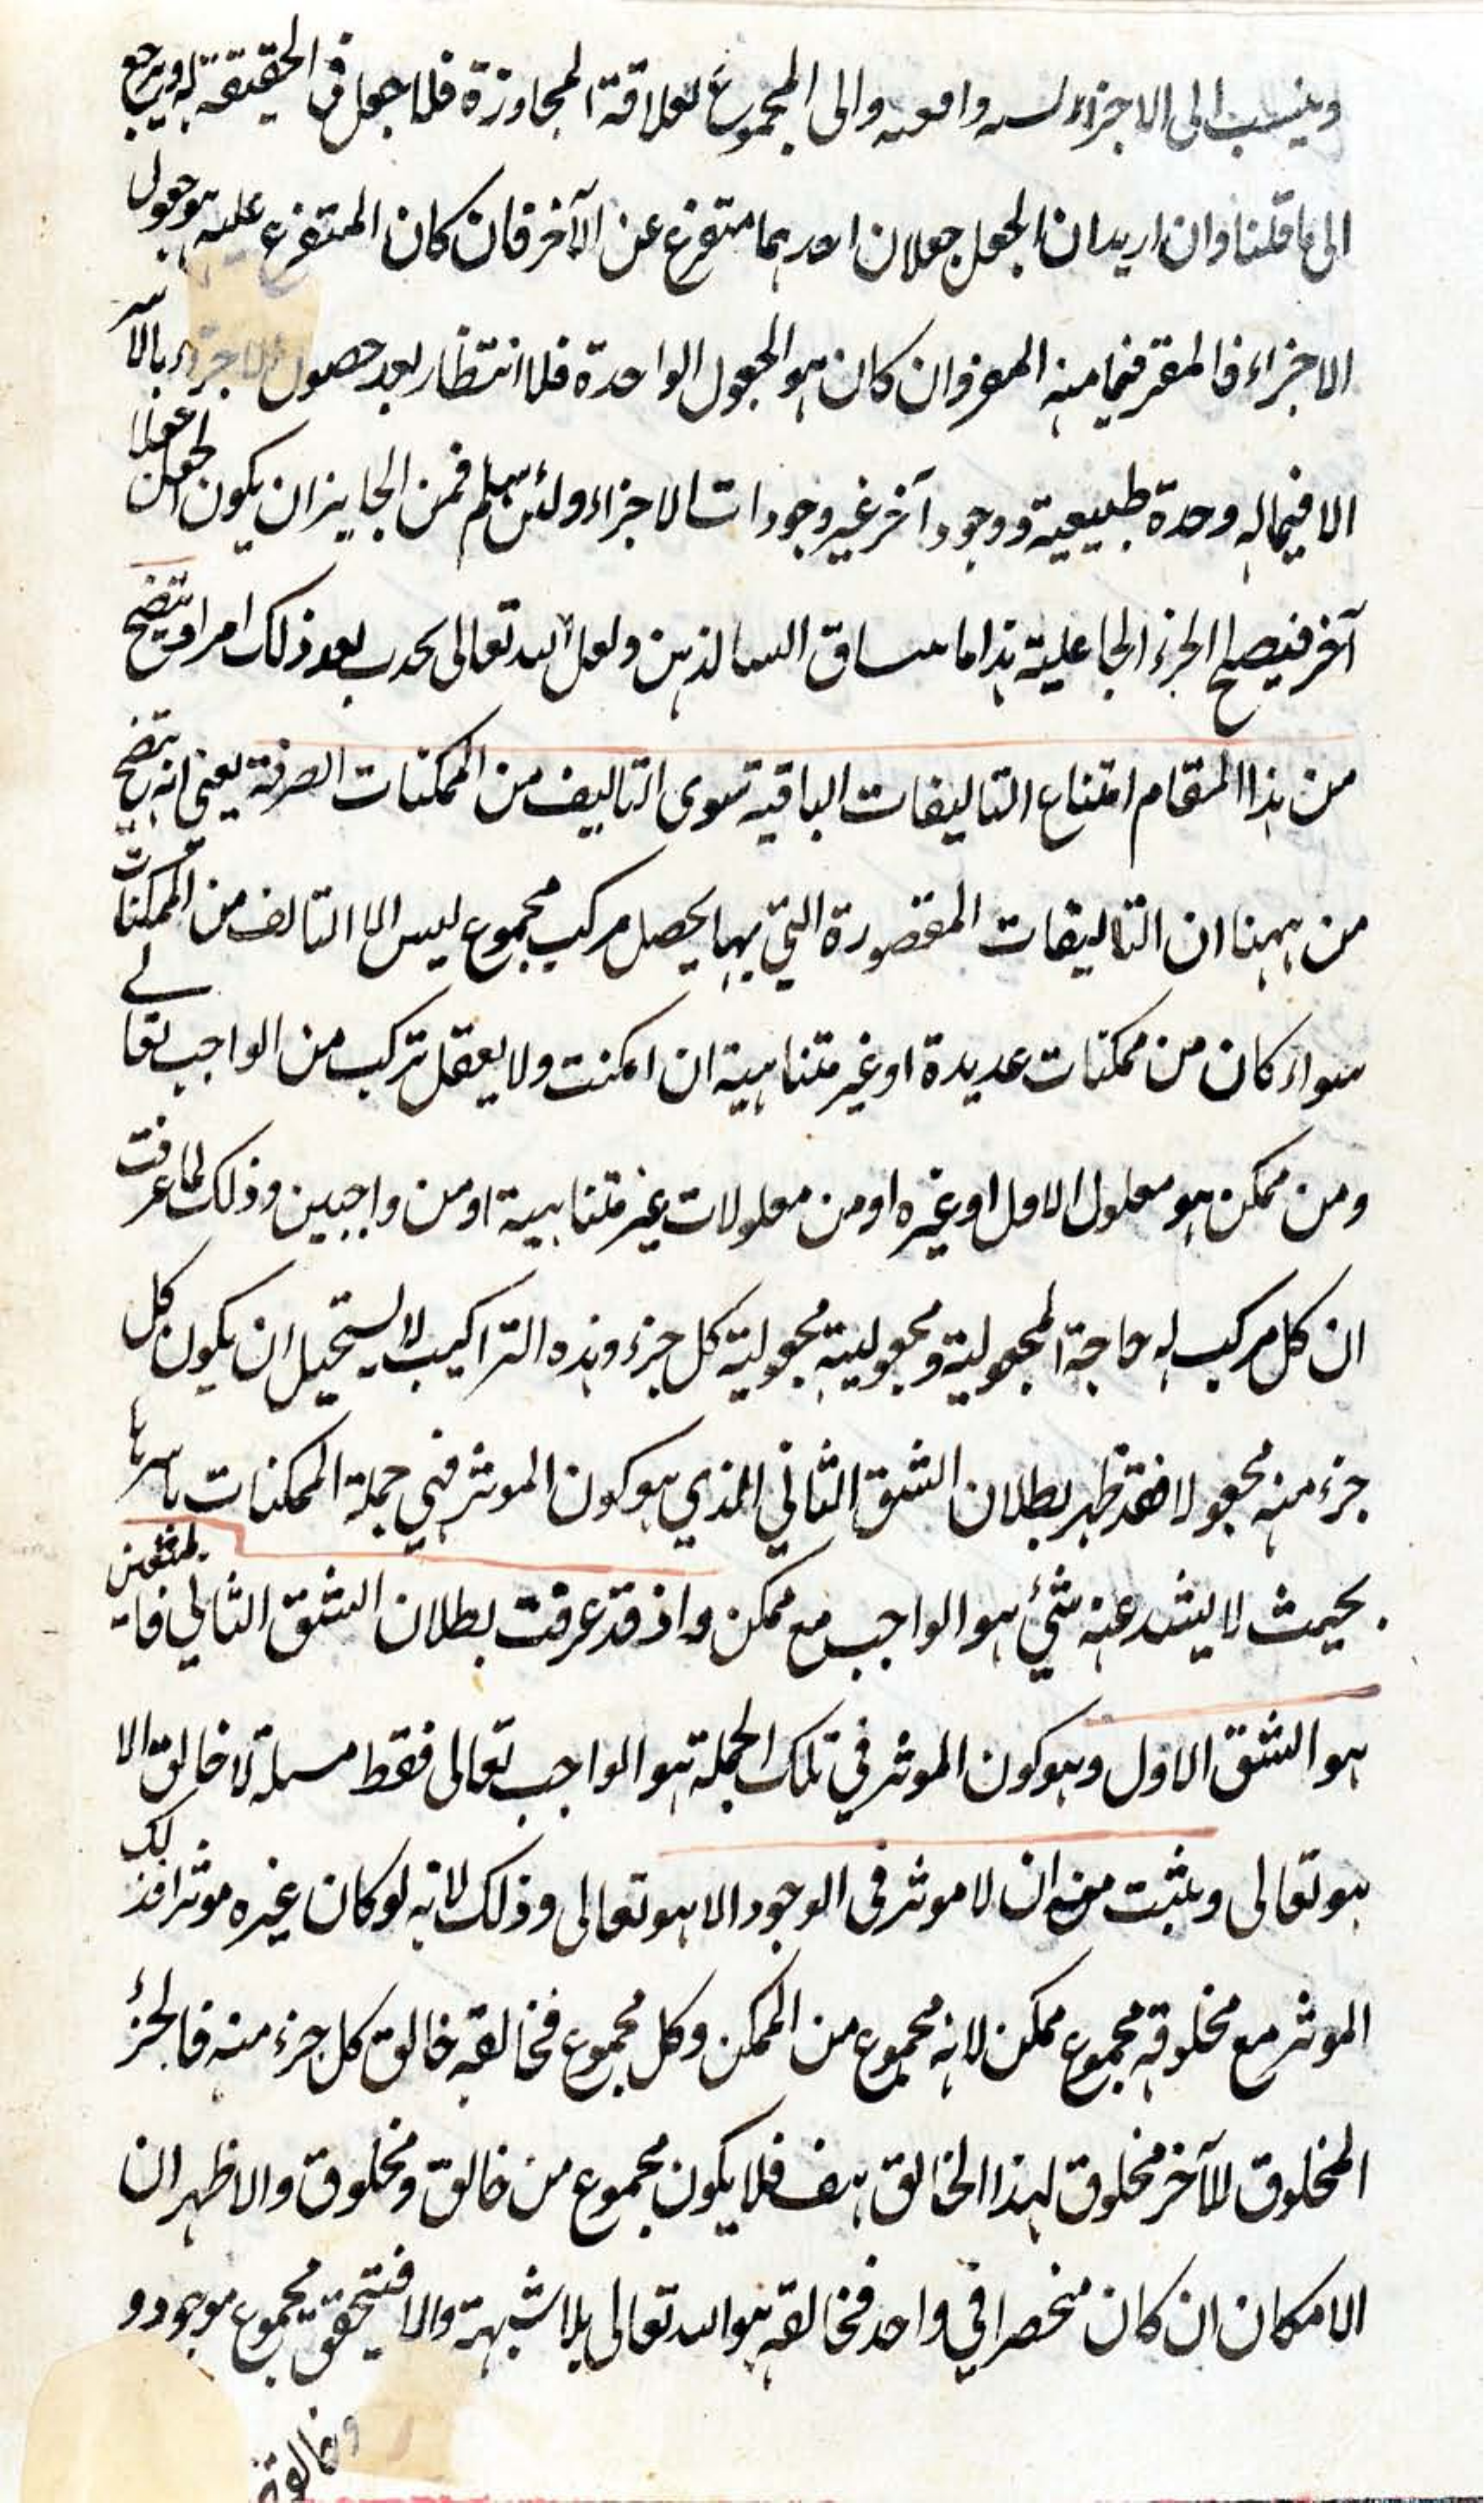 وينسب الى الاجزاء والى المجموع لعلاقة المجاورة فلا جعل في الحقيقة له ويرجع
الى ما قلنا وان اريد ان الجعل جعلان احدهما متفرع عن الآخر فان كان المتفرع عليه هو جعول
الاجزاء فالمقر فيما منه المفر وان كان هو الجعول الواحدة فلا انتظار بعد حصول الاجزاء بالاسر
الا فيما له وحدة طبيعية ووجود آخر غير وجودات الاجزاء ولئن سلم فمن الجايز ان يكون الجعل جعلا
آخر فيصلح الجزء الجاعلية هذا ما ساق الينا الذهن ولعل الله تعالى يحدث بعد ذلك امرا ويتضح
من هذا المقام امتناع التاليفات الباقية سوى التاليف من الممكنات الصرفة يعنى انه يتضح
من ههنا ان التاليفات المقصورة التي بها يحصل مركب مجموع ليس الا التالف من الممكنات
سواء كان من ممكنات عديدة او غير متناهية ان امكنت ولا يعقل تركب من الواجب تعالى
ومن ممكن هو معلول الاول او غيره او من معلولات غير متناهية او من واجبين وذلك لما عرفت
ان كل مركب له حاجة المجعولية ومجعوليته مجعولية كل جزء وهذه التراكيب لا يستحيل ان يكون كل
جزء منه مجعولا فقد ظهر بطلان الشق الثاني الذي هو كون الموثر في جملة الممكنات باسرها
بحيث لا يشذ عنه شئ هو الواجب مع ممكن واذ قد عرفت بطلان الشق الثاني فالمتعين
هو الشق الاول وهو كون الموثر في تلك الجملة هو الواجب تعالى فقط مسلة لا خالق الا
هو تعالى ويثبت منه ان لا موثر فى الوجود الا هو تعالى وذلك لانه لو كان غيره موثرا فذلك
الموثر مع مخلوقه مجموع ممكن لانه مجموع من الممكن وكل مجموع فخالقه خالق كل جزء منه فالجزء
المخلوق للآخر مخلوق لهذا الخالق هف فلا يكون مجموع من خالق ومخلوق والاظهر ان
الامكان ان كان منحصرا في واحد فخالقه هو الله تعالى بلا شبهة والا فيتحقق مجموع موجود و
وخالقه